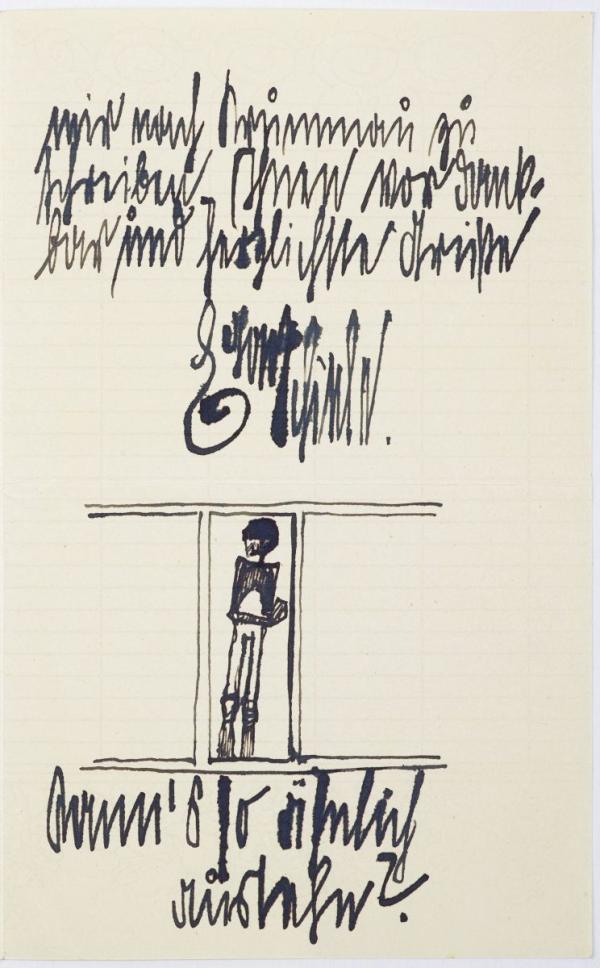 mir nach Krummau zu
schreiben. Ihnen vor dank-
bar und herzlichste Grüße
Egon Schiele.
Kann's so ähnlich
aussehn?